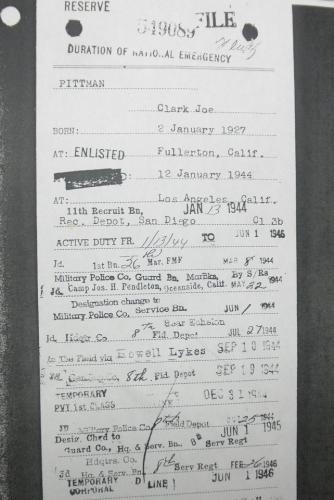 RESERVE
549089 FILE
DURATION OF NATIONAL EMERGENCY
PITTMAN
Clark Joe
BORN: 2 January 1927
AT: ENLISTED Fullerton, Calif.
12 January 1944
AT: Los Angeles, Calif.
11th Recruit Bn, JAN 13 1944
Rec. Depot, San Diego Cl 3b
ACTIVE DUTY FR. 1/13/44 TO JUN 1 1946
Jd. 1st Bn, 26 Mar. FMF MAR 8 1944
Military Police Co, Guard Bn, MarBks, By S/Rs
Jd. Camp Jos. H. Pendleton, Oceanside, Calif. MAY 22 1944
Designation change to
Military Police Co, Service Bn, JUN 1 1944
8th Rear Echelon
Jd. Hdqtr Co. Fld. Depot JUL 27 1944
to The Field via Howell Lykes SEP 10 1944
8th Fld. Depot SEP 19 1944
TEMPORARY
PVT 1ST CLASS DEC 31
JD Military Police Co Field Depot 1945
Desig. Ch'd to JUN 1 1945
Guard Co., Hq. & Serv. Bn. 8th Serv Regt
Hdqtrs. Co.
Jd Hq. & Serv. Bn. 8th Serv Regt FEB 26 1946
TEMPORARY D LINE JUN 1 1946
CORPORAL